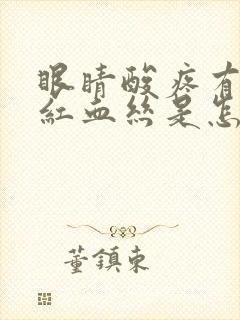 眼睛酸疼有
紅血絲是怎
董鎮東